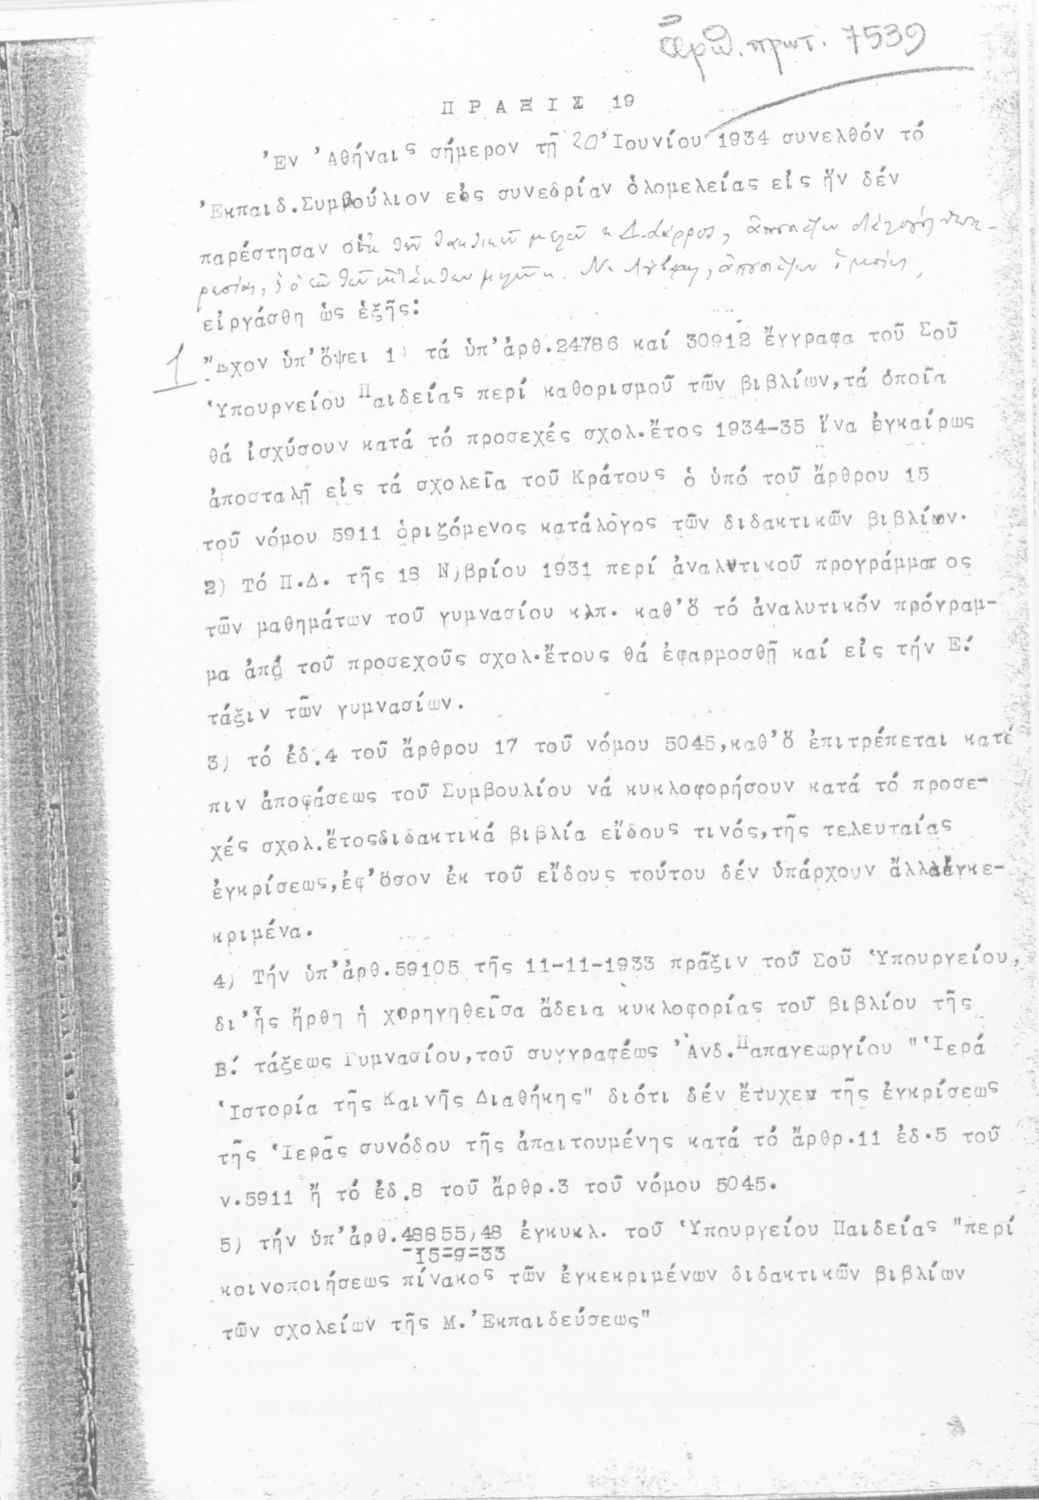 ἀριθ. πρωτ. 7539
ΠΡΑΞΙΣ 19
Ἐν Ἀθήναις σήμερον τῇ 20 Ἰουνίου 1934 συνελθόν τό
Ἐκπαιδ.Συμβούλιον εἰς συνεδρίαν ὁλομελείας εἰς ἥν δέν
παρέστησαν ἐκ τῶν τακτικῶν μελῶν
εἰργάσθη ὡς ἑξῆς:
1 Ἔχον ὑπ' ὄψει 1) τά ὑπ' ἀρθ.24786 καί 30912 ἔγγραφα τοῦ Σοῦ
Ὑπουργείου Παιδείας περί καθορισμοῦ τῶν βιβλίων,τά ὁποῖα
θά ἰσχύσουν κατά τό προσεχές σχολ.ἔτος 1934-35 ἵνα ἐγκαίρως
ἀποσταλῇ εἰς τά σχολεῖα τοῦ Κράτους ὁ ὑπό τοῦ ἄρθρου 15
τοῦ νόμου 5911 ὁριζόμενος κατάλογος τῶν διδακτικῶν βιβλίων.
2) Τό Π.Δ. τῆς 18 Ν)βρίου 1931 περί ἀναλυτικοῦ προγράμματος
τῶν μαθημάτων τοῦ γυμνασίου κλπ. καθ' ὅ τό ἀναλυτικόν πρόγραμ-
μα ἀπό τοῦ προσεχοῦς σχολ.ἔτους θά ἐφαρμοσθῇ καί εἰς τήν Ε΄.
τάξιν τῶν γυμνασίων.
3) τό ἐδ.4 τοῦ ἄρθρου 17 τοῦ νόμου 5045,καθ' ὅ ἐπιτρέπεται κατό
πιν ἀποφάσεως τοῦ Συμβουλίου νά κυκλοφορήσουν κατά τό προσε-
χές σχολ.ἔτοςδιδακτικά βιβλία εἴδους τινός,τῆς τελευταίας
ἐγκρίσεως,ἐφ' ὅσον ἐκ τοῦ εἴδους τούτου δέν ὑπάρχουν ἄλλα ἐγκε-
κριμένα.
4) Τήν ὑπ' ἀρθ.59105 τῆς 11-11-1933 πρᾶξιν τοῦ Σοῦ Ὑπουργείου,
δι' ἧς ἤρθη ἡ χορηγηθεῖσα ἄδεια κυκλοφορίας τοῦ βιβλίου τῆς
Β΄. τάξεως Γυμνασίου,τοῦ συγγραφέως Ἀνδ.Παπαγεωργίου "Ἱερά
Ἱστορία τῆς Καινῆς Διαθήκης" διότι δέν ἔτυχεν τῆς ἐγκρίσεως
τῆς Ἱερᾶς συνόδου τῆς ἀπαιτουμένης κατά τό ἄρθρ.11 ἐδ.5 τοῦ
ν.5911 ἤ τό ἐδ.8 τοῦ ἄρθρ.3 τοῦ νόμου 5045.
5) τήν ὑπ' ἀρθ.48855,48 ἐγκυκλ. τοῦ Ὑπουργείου Παιδείας "περί
15=9=33
κοινοποιήσεως πίνακος τῶν ἐγκεκριμένων διδακτικῶν βιβλίων
τῶν σχολείων τῆς Μ.Ἐκπαιδεύσεως"